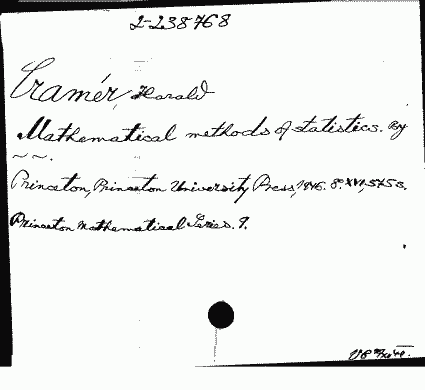 2-238768
Cramér, Harald
Mathematical methods of statistics. By
~~.
Princeton, Princeton University Press, 1946. 8. XVI, 575 s.
Princeton Mathematical Series. 9.